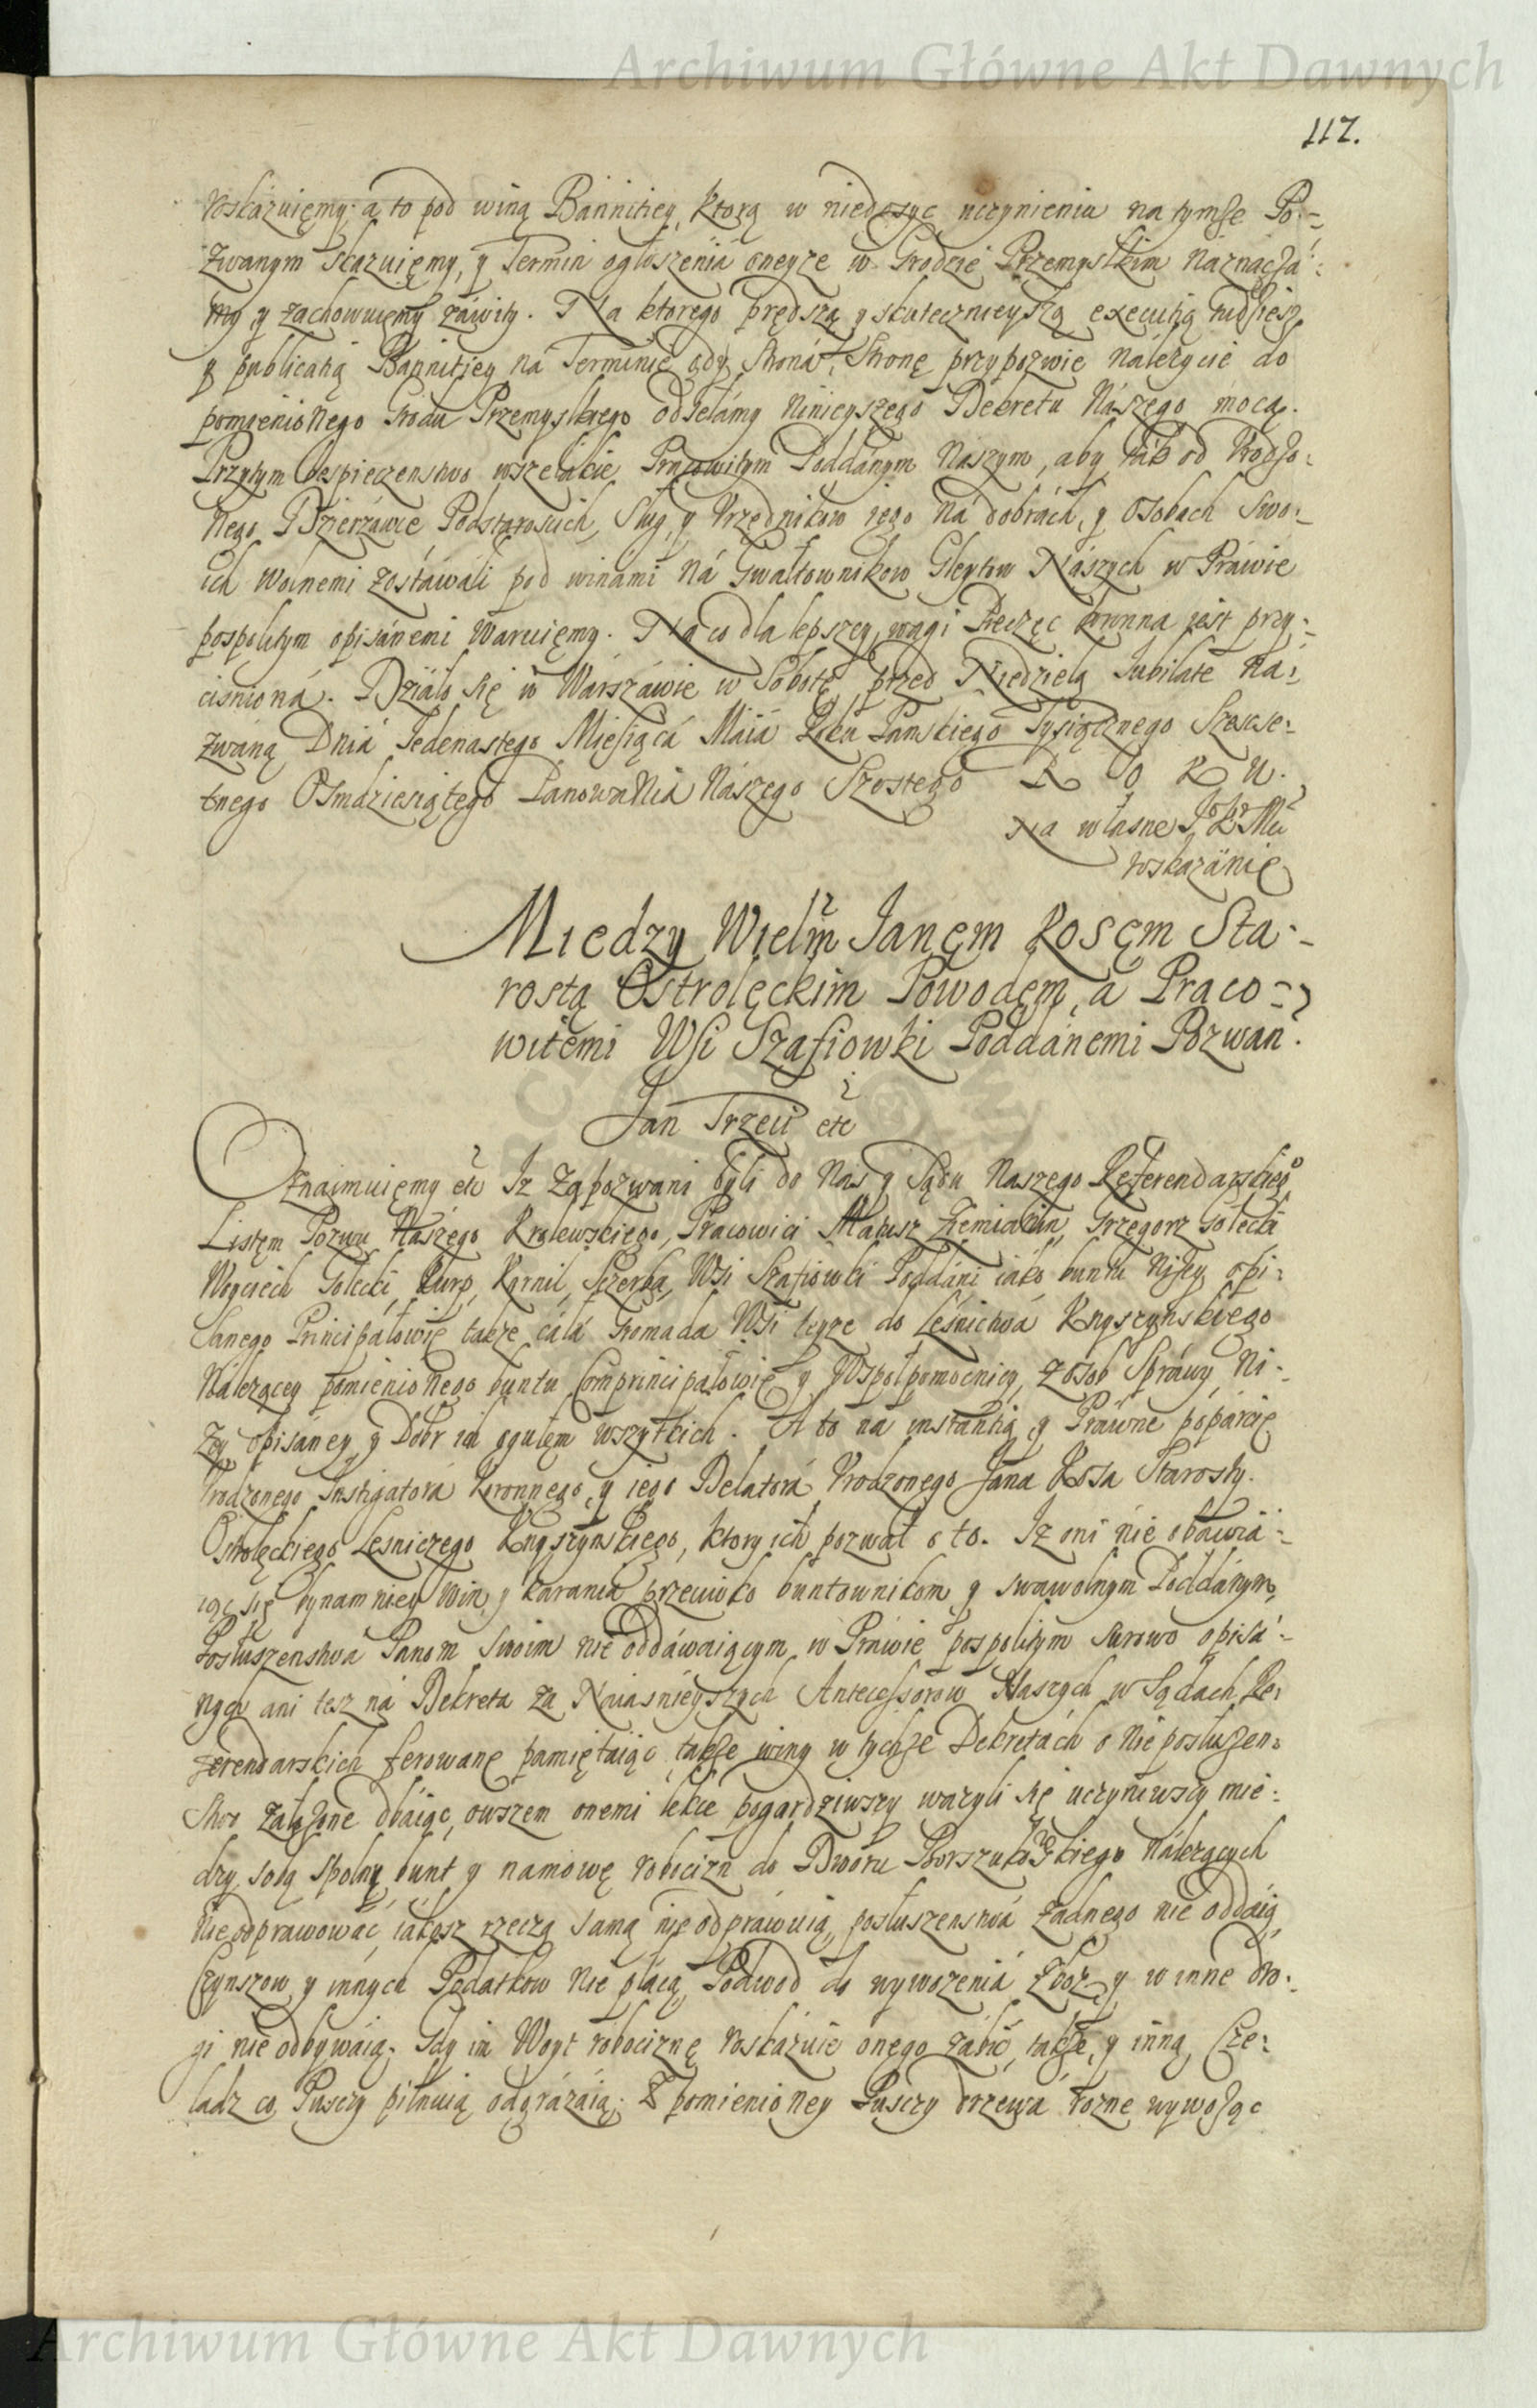 Archiwum Główne Akt Dawnych
117.
roskazuięmy, a to pod winą Bannitiey, ktorą w niedosyc uczynieniu na tymże Po-
zwanym skazuięmy, y Termin ogłoszenia oneyze w Grodzie Przemyskim náznaczá-
my y zachowuięmy záwity. Na ktorego prędszą y skutecznieyszą executią tudziesz
y publicatią Bannitiey ná Terminie gdy Stroná Stronę przypozwie nálezycie do
pomienionego Grodu Przemyskiego odsełámy ninieyszego Dekretu Nászego mocą.
Przytym bespieczenstwo wszelakie Pracowitym Poddánym Naszym, aby ták od Vrodzo-
nego Dzierzáwce Podstároscich, Sług, y Vrzędnikow iego ná dobrách, y Osobach Swo-
ich wolnemi zostáwáli pod winami ná Gwałtownikow Gleytow Nászych w Práwie
pospolitym opisánemi Waruięmy. Na co dla lepszey wagi Pieczęc koronna iest przy-
cisnioná. Działo się w Wárszáwie w Sobotę przed Niedzielą Iubilate ná-
zwáną Dniá Iedenastego Miesiącá Máiá Roku Panskiego Tysiącznego Szescse-
tnego Osmdziesiątego Panowánia Nászego Szostego R O K U.
Na własne I K Mci
roskazánie
Miedzy Wielm Janęm Kosęm Sta-
rostą Ostrolęckim Powodęm, a Praco-
witemi Wsi Szafiowki Poddánemi Pozwan.
Jan Trzeci etc
Oznaimuięmy etc Iz Zapozwani byli do Nas y Sądu Naszego Referendarskiego
Listęm Pozwu Nászego Krolewskiego, Pracowici Matusz Ziemianin, Grzegorz Golecki
Woyciech Golecki, Kurp, Kornil, Szerba, Wsi Szafiowki Poddáni iáko buntu niżey opi-
sanego Principałowie także cáłá Gromada Wsi teyze do Leśnictwá Knyszynskiego
Nálezącey pomienionego buntu Comprincipałowie y Wspołpomocnicy, z osob Spráwy Ni-
zey opisáney y Dobr ich ogułęm wszytkich. A to na instántią y Práwne popárcie
Vrodzonego Instigatorá Koronnego, y iego Delatorá Vrodzonego Jana Kosa Starosty
Ostrolęckiego Lesniczego Knyszynskiego, ktory ich pozwał o to. Iz oni nie obawia-
iąc się bynamniey win y karania przeciwko buntownikom y swawolnym Poddánym,
Posłuszenstwá Panom swoim nie oddáwaiącym w Práwie pospolitym surowo opisá-
nych ani tesz ná Dekreta za Naiasnieyszych Antecessorow Naszych w Sądach Re-
ferendarskich ferowane pamiętaiąc także winy w tychże Dekretách o nieposłuszen-
stwo założone dbáiąc, owszem onemi lekce pogardziwszy wazyli się uczyniwszy mie-
dzy sobą społny bunt y namowę robocizn do Dworu Borszukowskiego nálezących
nie odprawowác, iákosz rzeczą samą nie odpráwuią, posłuszenstwá zadnego nie oddáią
Czynszow y innych Podatkow nie płácą, Podwod do wywozeniá Zboz y w inne dro-
gi nie odbywáią. Gdy im Woyt robociznę roskázuie onego zábić, także, y inną Cze-
ladz co Pusczy pilnuią odgrázáią. Z pomienioney Pusczy drzewá rozne wywożąc
Archiwum Główne Akt Dawnych